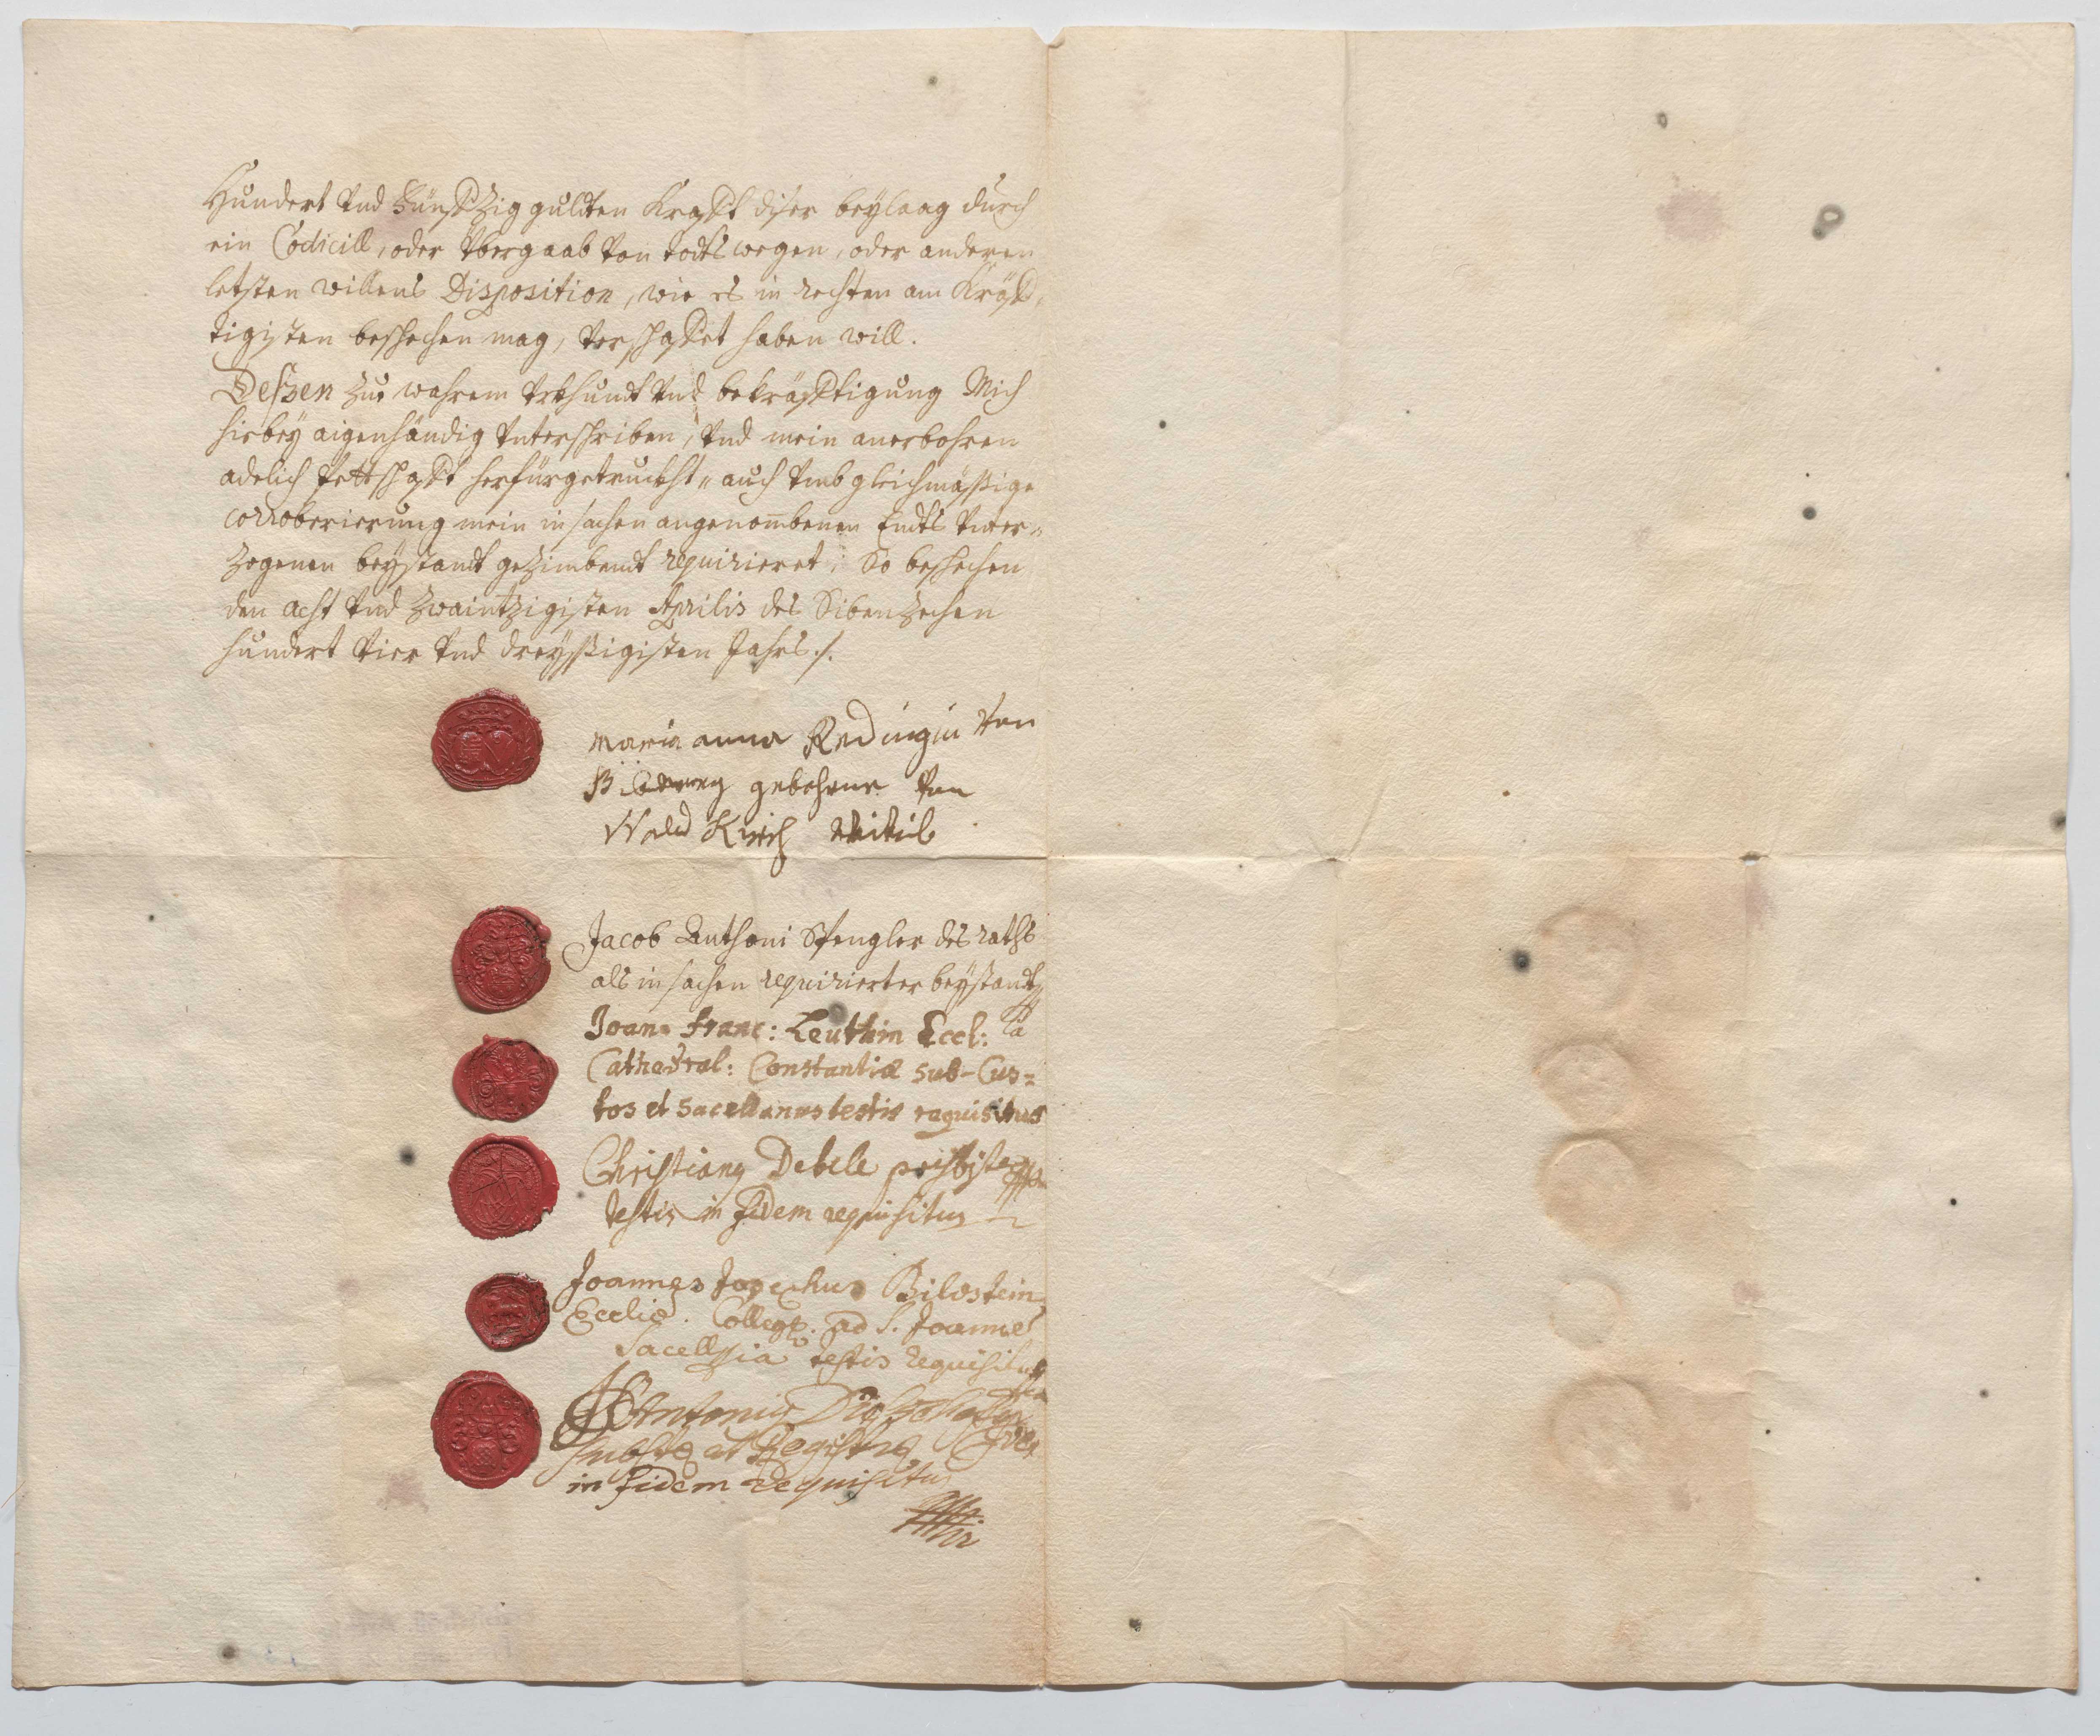 Hundert vnd Fünffzig gulden Krafft diser beylaag durch
ein Codicill, oder vbergaab von todts wegen, oder anderen
letsten willens Disposition, wie es in rechten am Kräff-
tigisten beschechen mag, verschaffet haben will.
Dessen zue wahrem vrkhundt vnd bekräfftigung Mich
hirbey aigenhändig vnterschriben, vnd mein anerbohren
adelich Pettschafft herfürgetruckht, auch vmb gleichmässige
corroborierung mein in sachen angenombenen Endts vnter-
zogenen beystandt gezimbendt requirieret. So beschechen
den acht vnd zwaintzigisten Aprilis des Sibenzechen
hundert vier vnd dreyssigisten Jahrs ./.
Maria anna Redingin von
Biberegg gebohrne von
Wald Kirch Wittib
Jacob Anthoni Spengler des raths
als in sachen requirierter beystandt
Joan: Franc: Leuthin Eccl: iæ
Cathedral: Constantiæ Sub-Cus=
tos et Sacellanus testis requisitus
Christianus Debele presbyter
testis in fidem requisitus
Joannes Jodochus Bilostein
Eccliæ. Colleg: ad S. Joannem
testis requisitus
Antonius
et
in fidem requisitus